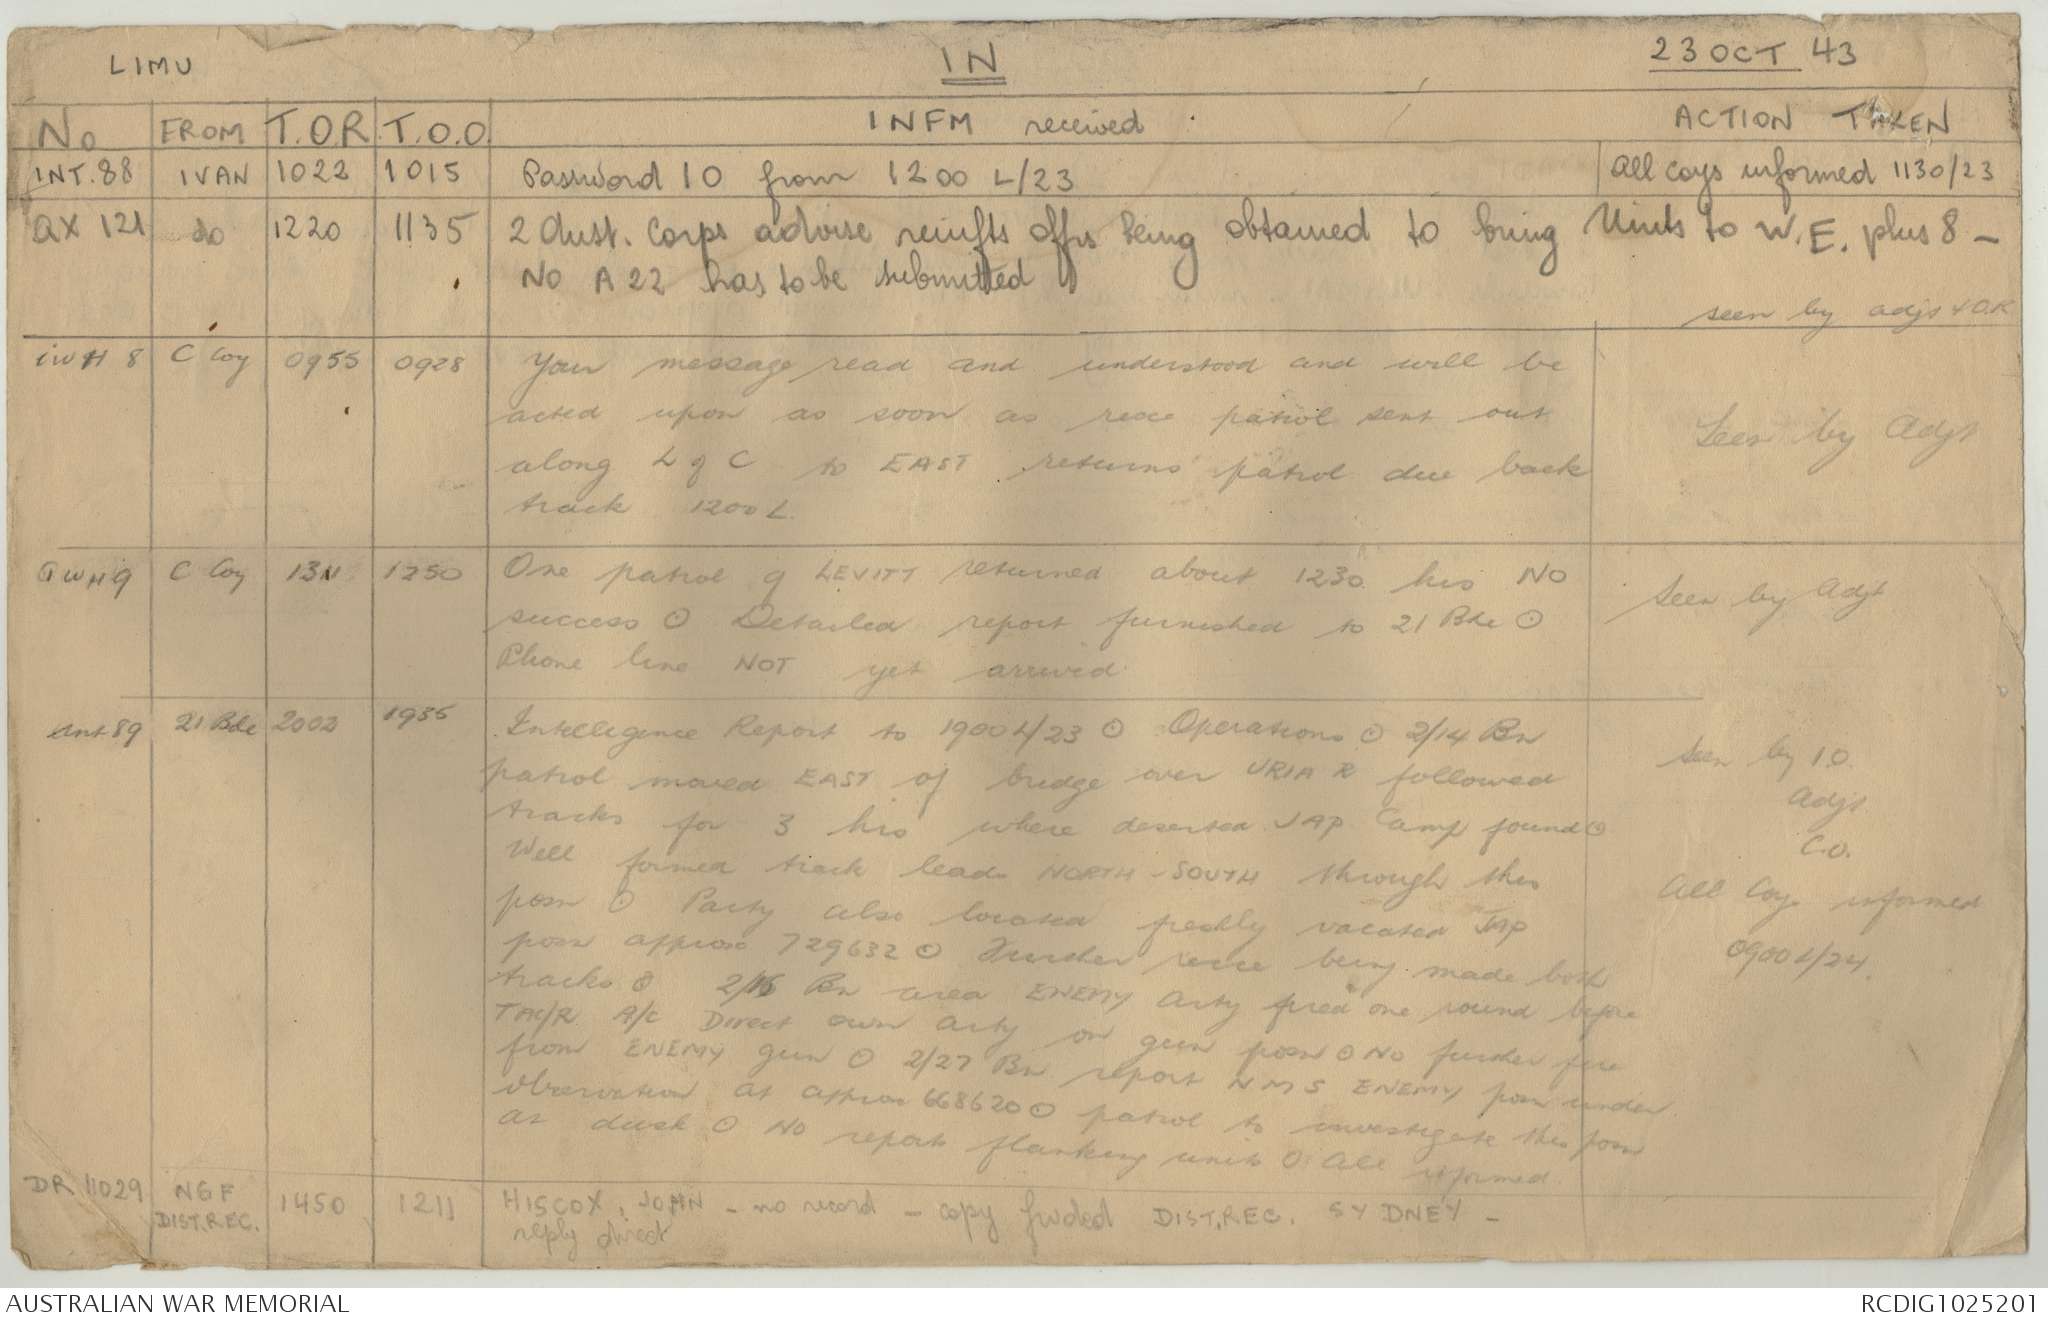 LIMU IN 23 OCT 43
No FROM T.O.R. T.O.O. INFM received ACTION TAKEN
INT.88 IVAN 1022 1015 Password 10 from 1200 L/23 All coys informed 1130/23
QX 121 do 1220 1135 2 Aust. Corps advise reinfts offrs being obtained to bring Units to W.E. plus 8 -
No A 22 has to be submitted
seen by adjt
8 C Coy 0955 0928 Your message read and understood and will be
acted upon as soon as recce patrol sent out
along L of C to EAST returns patrol due back
track 1200 L.
Seen by Adjt
9 C Coy 1250 One patrol of LEVITT returned about 1230 hrs NO
success ⊙ Detailed report furnished to 21 Bde ⊙
Phone line NOT yet arrived
Seen by Adjt
Int 89 21 Bde 2002 1935 Intelligence Report to 1900L/23 ⊙ Operations ⊙ 2/14 Bn
patrol moved EAST of bridge over URIA R followed
tracks for 3 hrs where deserted JAP Camp found ⊙
Well formed track leads NORTH-SOUTH through this
posn ⊙ Party also located freshly vacated JAP
posn approx 729632 ⊙ Further recce being made both
tracks ⊙ 2/16 Bn area ENEMY Arty fired one round before
TAC/R A/C Direct own arty on gun posn ⊙ No further fire
from ENEMY gun ⊙ 2/27 Bn report N M S ENEMY posn under
observation at approx 668620 ⊙ patrol to investigate this posn
at dusk ⊙ No report flanking units ⊙ All informed.
Seen by I.O.
Adjt
C.O.
All Coys informed
0900L/24.
DR 11029 NGF DIST.REC. 1450 1211 HISCOX, JOHN - no record - copy fwded DIST.REC. SYDNEY -
reply direct
AUSTRALIAN WAR MEMORIAL RCDIG1025201